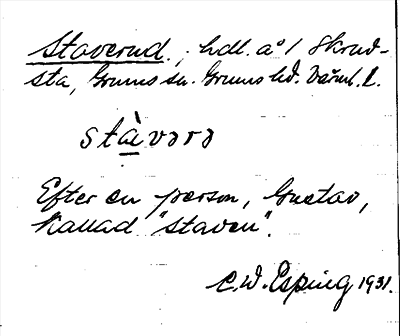 Staverud, hdl. å 1 Skrud-
sta, Grums sn. Grums hd. Värml. l.
stàvərə
Efter en person, Gustav,
kallad "staven".
C.W. Esping 1931.